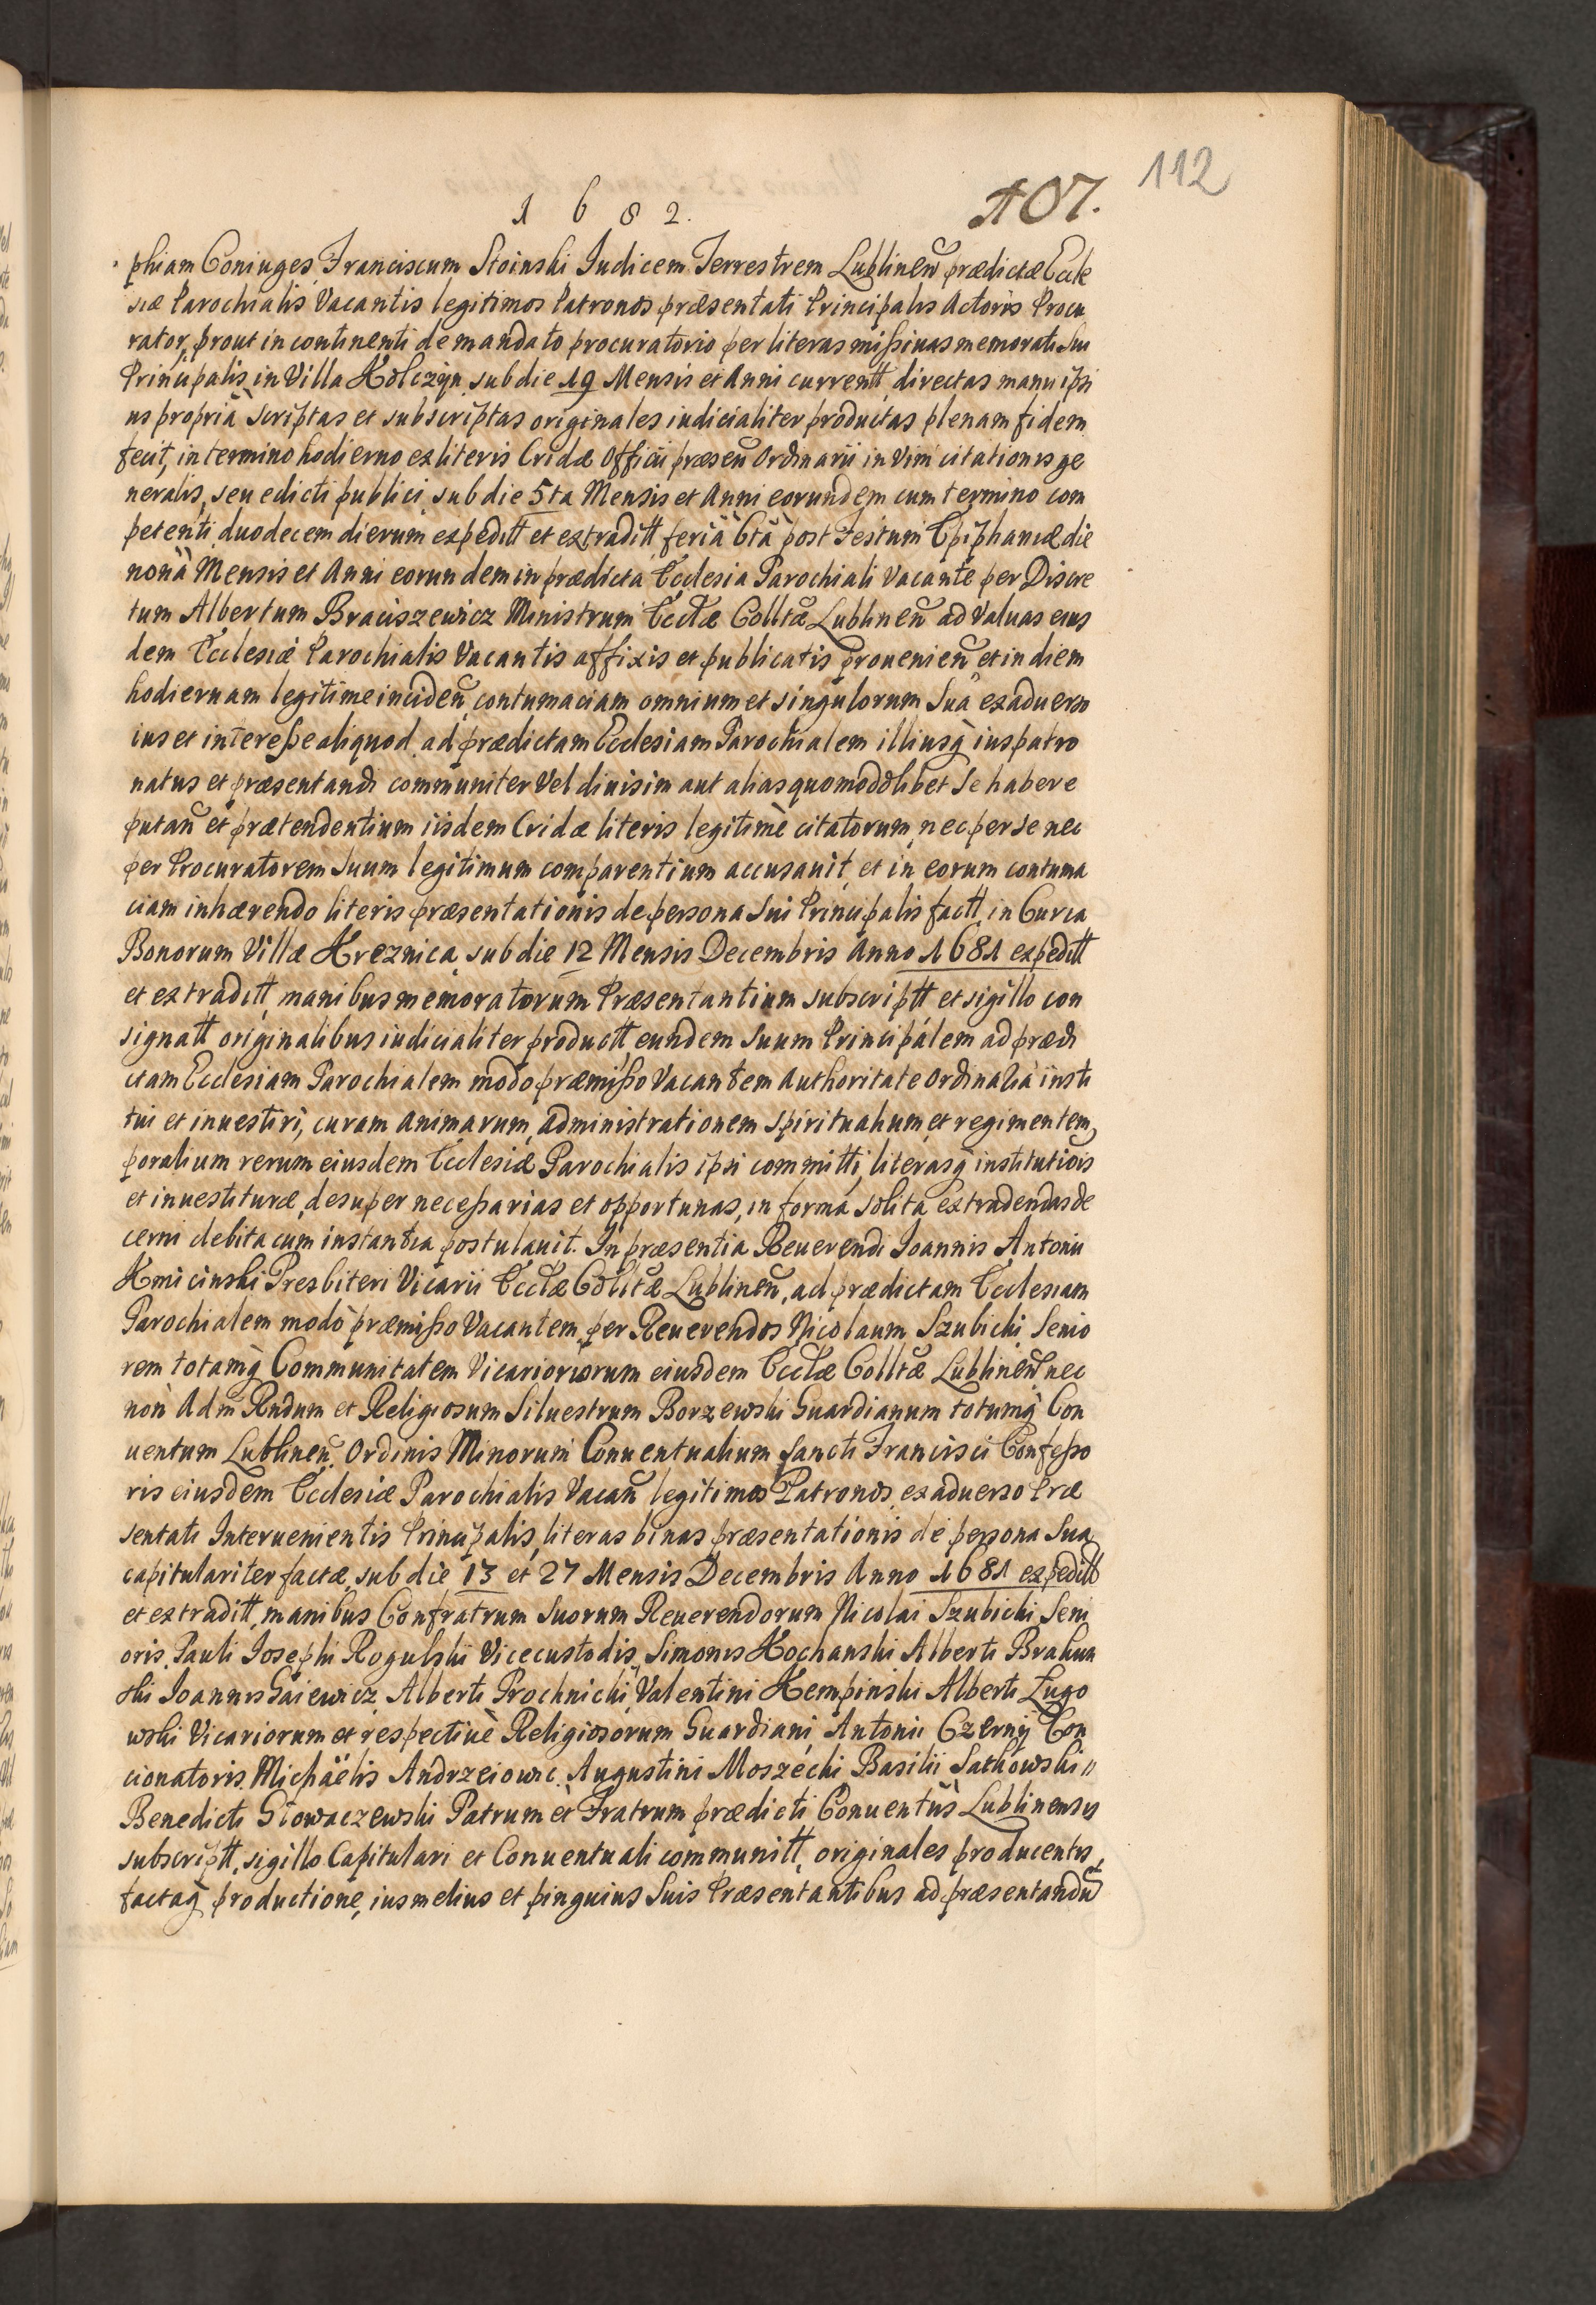 112
1 6 8 2.
107.
phiam Coniuges, Franciscum Stoinski Iudicem Terrestrem Lublineñ prædictæ Eccle
siæ Parochialis Vacantis legitimos Patronos præsentati Principalis Actoris Procu
rator, prout in continenti de mandato procuratorio per literas missiuas memorati Sui
Principalis, in Villa Kolczyn sub die 19 Mensis et Anni currentt directas manu ipsi
us propriâ scriptas et subscriptas originales iudicialiter productas plenam fidem
fecit, in termino hodierno ex literis Cridæ Officii præseñ Ordinarii in Vim citationis ge
neralis, seu edicti publici sub die 5ta Mensis et Anni eorundem cum termino com
petenti duodecem dierum expeditt et extraditt feriâ 6tâ post Festum Epiphaniæ die
nonâ Mensis et Anni eorundem in prædicta Ecclesia Parochiali Vacante per Discre
tum Albertum Braciszewicz Ministrum Ecclæ Colltæ Lublineñ ad Valuas eius
dem Ecclesiæ Parochialis Vacantis affixis et publicatis prouenieñ et in diem
hodiernam legitime incideñ, contumaciam omnium et singulorum Suâ ex aduerso
ius et interesse aliquod ad prædictam Ecclesiam Parochialem illiusq̀ ius patro
natus et præsentandi communiter Vel diuisim aut alias quomodolibet Se habere
putañ et prætendentium iisdem Cridæ literis legitimè citatorum, nec per se nec
per Procuratorem Suum legitimum comparentium accusauit, et in eorum contuma
ciam inhærendo literis præsentationis de persona Sui Principalis factt, in Curia
Bonorum Villæ Kreznica sub die 12 Mensis Decembris Anno 1681 expeditt
et extraditt, manibus memoratorum Præsentantium subscriptt et sigillo con
signatt originalibus iudicialiter productt, eundem Suum Principalem ad prædi
ctam Ecclesiam Parochialem modo præmisso Vacantem Authoritate Ordinaria insti
tui et inuestiri, curam animarum, administrationem spiritualium, et regimen tem
poralium rerum eiusdem Ecclesiæ Parochialis ipsi committi, literasq̀ institutiois
et inuestituræ, desuper necessarias et opportunas, in forma solita extradendas de
cerni debita cum instantia postulauit. In præsentia Reuerendi Ioannis Antonii
Kmicinski Presbiteri Vicarii Ecclæ Colltæ Lublineñ, ad prædictam Ecclesiam
Parochialem modo præmisso Vacantem, per Reuerendos Nicolaum Szubicki Senio
rem totamq̀ Communitatem Vicarioriorum eiusdem Ecclæ Colltæ Lublineñ nec
non Adm Rndum et Religiosum Siluestrum Borzewski Guardianum totumq̀ Con
uentum Lublineñ Ordinis Minorum Conuentualium Sancti Francisci Confesso
ris eiusdem Ecclesiæ Parochialis Vacañ legitimos Patronos, ex aduerso Præ
sentati Interuenientis Principalis, literas binas præsentationis de persona Sua
capitulariter factæ, sub die 13 et 27 Mensis Decembris Anno 1681 expeditt
et extraditt, manibus Confratrum Suorum Reuerendorum Nicolai Szubicki Seni
oris, Pauli Iosephi Rogulski Vicecustodis, Simonis Kochanski Alberti
ski Ioannis Gaiewicz Alberti Prochnicki Valentini Kempinski Alberti Lugo
wski Vicariorum et respectiuè Religiosorum Guardiani, Antonii Czerny Con
cionatoris, Michaëlis Andrzeiowic, Augustini Moszecki Basilii Satkowski
Benedicti Stowaczewski Patrum et Fratrum prædicti Conuentûs Lublinensis
subscriptt, sigillo Capitulari et Conuentuali communitt, originales producentis,
factaq̀ productione, ius melius et pinguius Suis Præsentantibus ad præsentandũ